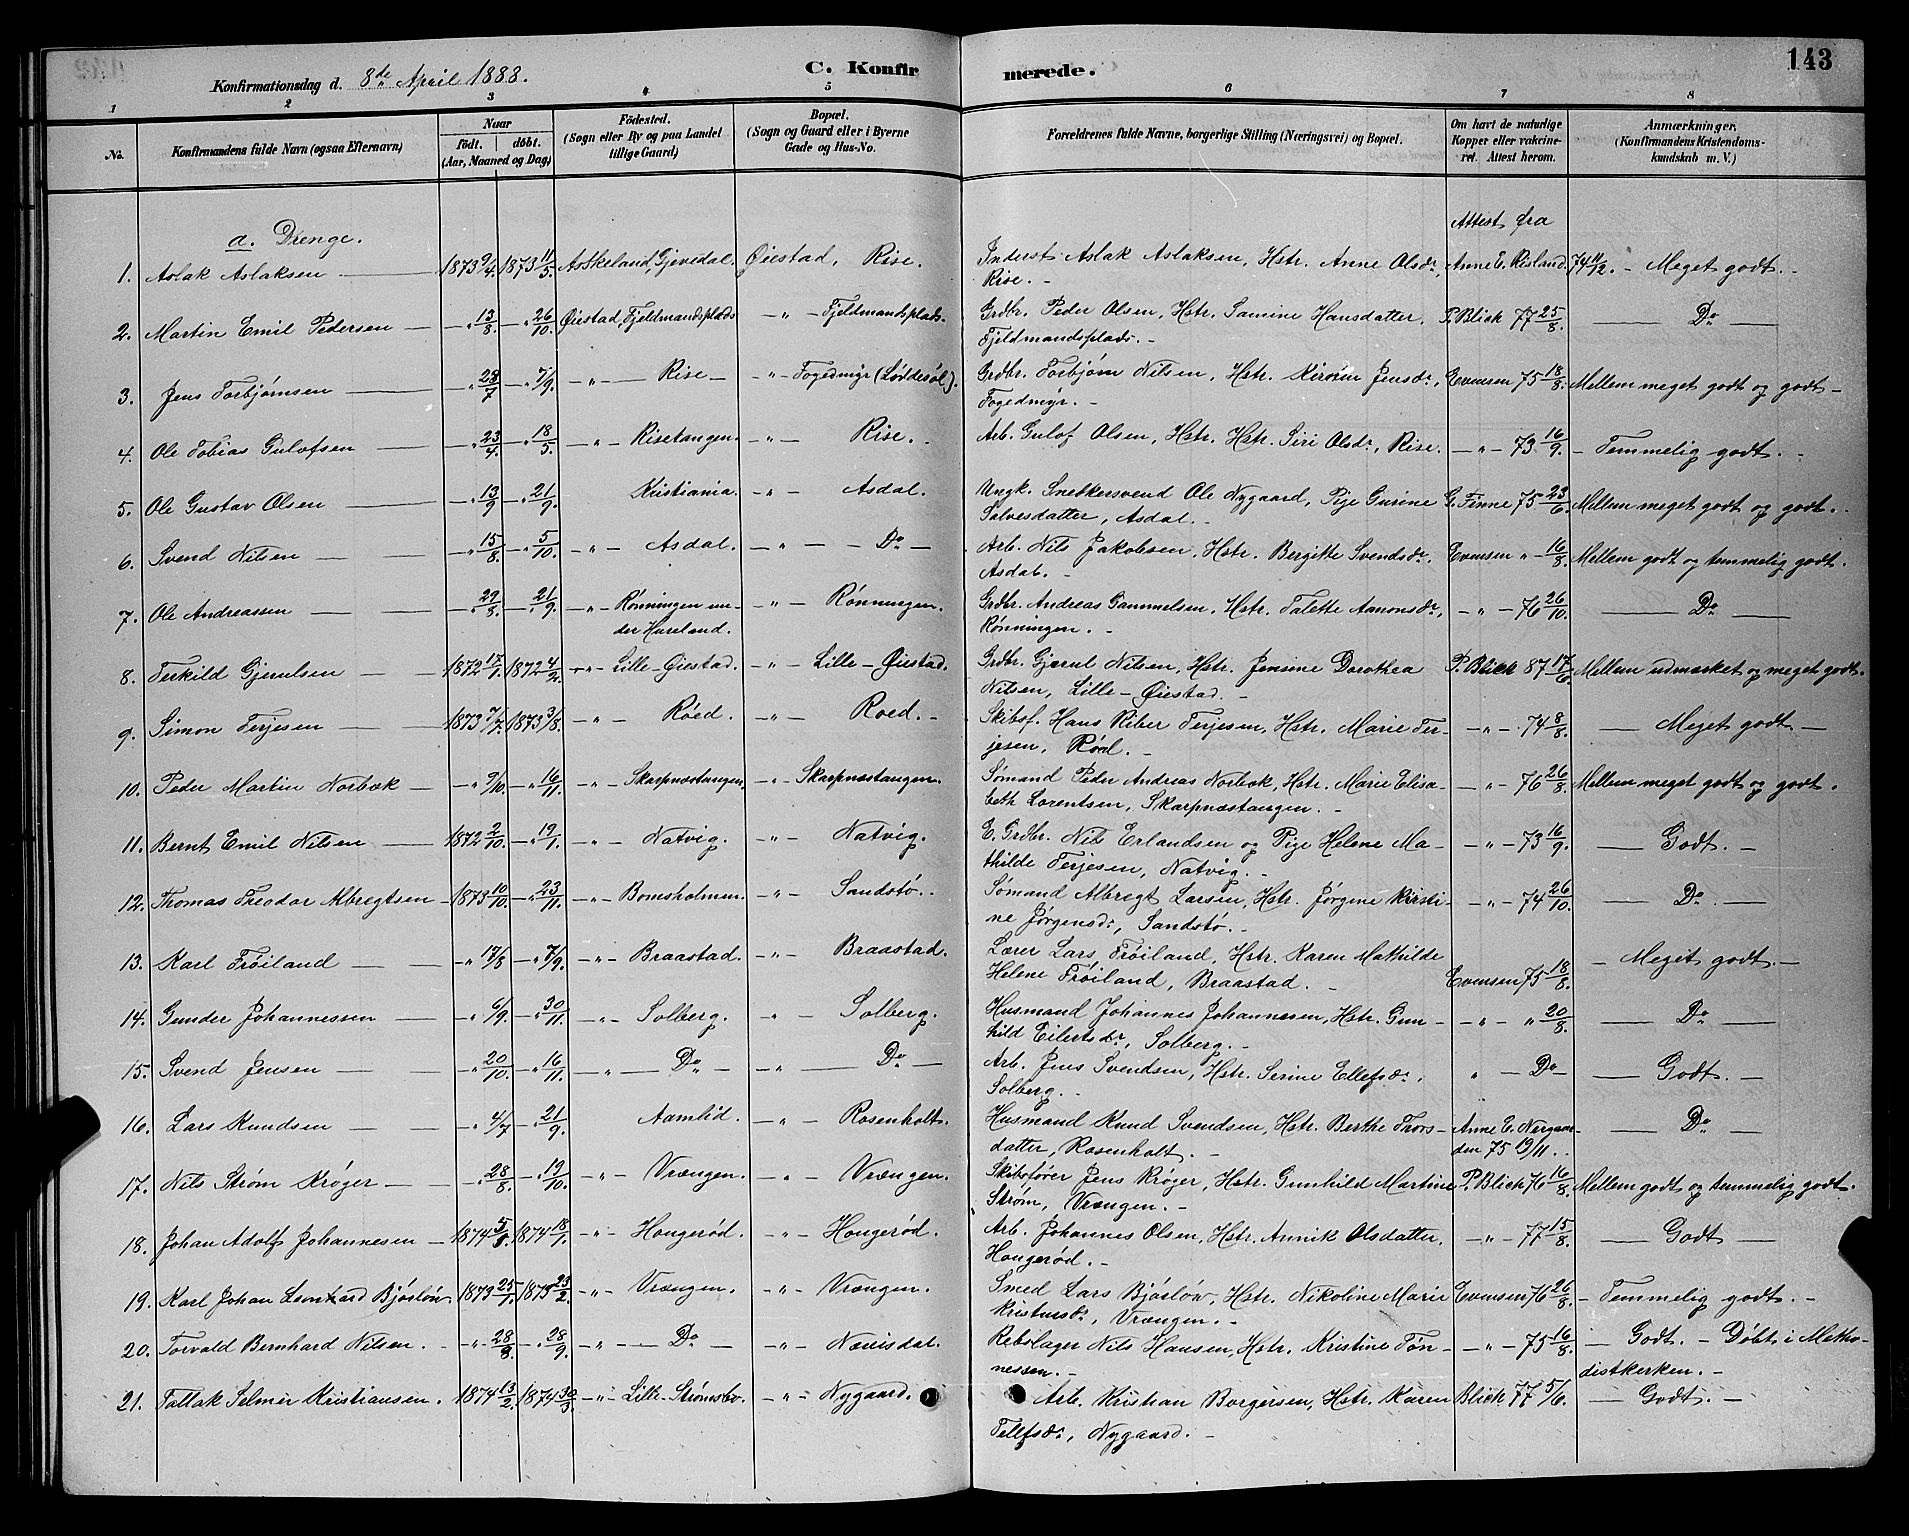 143
Konfirmationsdag d. 8de April 1888. C. Konfirmerede.
1 2 3 4 5 6 7 8
No. Konfirmandens fulde Navn (ogsaa Efternavn) Naar født. døbt. (Aar, Maaned og Dag) Fødested. (Sogn eller By og paa Landet tillige Gaard) Bopæl. (Sogn og Gaard eller i Byerne Gade og Hus-No. Forældrenes fulde Navne, borgerlige Stilling (Næringsvei) og Bopæl. Om havt de naturlige Kopper eller vaccineret. Attest herom. Anmærkninger, (Konfirmandens Kristendomskundskab m. V.)
a. Drenge. Attest fra
1. Aslak Aslaksen 1873 9/4 1873 11/5 Askeland, Gjevedal. Øiestad, Rise. Inderst Aslak Aslaksen, Hstr. Anne Olsdr, Anne E. Risland. 74 11/12. – Meget godt. –
Rise. –
2. Martin Emil Pedersen — " 13/8. – " 26/10. Øiestad, Fjeldmandsplads – " – Fjeldmandsplads. Grdbr. Peder Olsen, Hstr. Samine Hansdatter, P. Blick 77 25/8. — Do —
Fjeldmandsplads. –
3. Jens Torbjørnsen — " 28/7 – " 7/9. – " — Rise – – " – Fogedmyr (Løddesøl). Grdbr. Torbjørn Nilsen, Hstr. Jensdr, Evensen 75 18/8. Mellem meget godt og godt –
Fogedmyr. –
4. Ole Tobias Gulofsen — " 23/4. – " 18/5. – " – Risetangen. – " – Rise. Arb. Gulof Olsen, Hstr. Hstr. Siri Olsdr, Rise. – " – 73 16/9. – Temmelig godt. –
5. Ole Gustav Olsen — " 13/9 – " 21/9. Kristiania. – " – Asdal. Ungk. Snedkersvend Ole Nygaard, Pige Gurine G. Finne 75 23/6. Mellem meget godt og godt. –
Salvesdatter, Asdal. –
6. Svend Nilsen — " 15/8. – " 5/10. – " – Asdal. – " – – Do – Arb. Nils Jakobsen, Hstr. Bergitte Svendsdr, Evensen " – 16/8. Mellem godt og temmelig godt.
Asdal. –
7. Ole Andreassen — " 29/8. – " 21/9. – " – Rønningen un- – " – Rønningen. Grdbr. Andreas Gammelsen, Hstr. Talette Aanonsdr, – " – 76 26/10. — Do —
der Huseland. Rønningen. –
8. Terkild Gjerulsen — 1872 17/1. 1872 4/2. – " – Lille-Øiestad. – " – Lille-Øiestad. Grdbr. Gjerul Nilsen, Hstr. Jensine Dorothea P. Blick 87 17/6. Mellem udmærket og meget godt.
Nilsen, Lille-Øiestad. –
9. Simon Terjesen — 1873 7/7. 1873 3/8. – " – Røed. – " – Roed. – Skibsf. Hans Riber Terjesen, Hstr. Marie Ter- – " – 74 8/8. — Meget godt –
jesen, Røed. –
10. Peder Martin Norbæk – " 9/10 – " 16/11. – " – Skarpnæstangen, – " – Skarpnæstangen. Sømand Peder Andreas Norbæk, Hstr. Marie Elisa- – " – 76 26/8. Mellem meget godt og godt.
beth Lorentsen, Skarpnæstangen. –
11. Bernt Emil Nilsen — 1872 2/10. – " 19/1. – " – Natvig. – " – Natvig. E. Grdbr. Nils Erlandsen og Pige Helene Ma- – " – 73 16/9. — Godt. –
thilde Terjesen, Natvig. –
12. Thomas Theodor Albregtsen – 1873 10/10. – " 23/11. – " – Bomsholmen. – " – Sandstø. Sømand Albregt Larsen, Hstr. Jørgine Kirsti- – " – 74 26/10. — Do. —
ne Jørgensdr, Sandstø. –
13. Karl Frøiland — " 17/8 – " 7/9. – " – Braastad. – " – Braastad. Lærer Lars Frøiland, Hstr. Karen Mathilde Evensen 75 18/8. – Meget godt. –
Helene Frøiland, Braastad. –
14. Gunder Johannessen — " 6/9. – " 30/11. – " – Solberg. – " – Solberg. Husmand Johannes Johannesen, Hstr. Gun- – " – " 20/8. — Do —
hild Eilertsdr, Solberg. –
15. Svend Jensen — " 20/10. – " 16/11. – " — Do – – " — Do — Arb. Jens Svendsen, Hstr. Serine Ellefsdr, " – Do – — Godt. –
Solberg. –
16. Lars Knudsen — " 4/7 – " 21/9. Aamlid. – " – Rosenholt. Husmand Knud Svendsen, Hstr. Berthe Thors- Anne E. Nergaar- — Do —
datter, Rosenholt. – den 75 19/11.
17. Nils Strøm Krøger – – " 28/8. – " 19/10. – " – Vrængen. – " – Vrængen. Skibsfører Jens Krøger, Hstr. Gunhild Martine P. Blick 76 16/8. Mellem godt og temmelig godt.
Strøm, Vrængen. –
18. Johan Adolf Johannesen – 1874 5/ 1874 18/1. – " – Hougerød. – " – Hougerød. Arb. Johannes Olsen, Hstr. Annik Olsdatter, – " – 77 15/8. — Godt —
Hougerød. –
19. Karl Johan Leonhard Bjøsløw. 1873 25/1. 1873 23/2. – " – Vrængen. – " – Vrængen. Smed Lars Bjøsløw, Hstr. Nikoline Marie Evensen 76 26/8. – Temmelig godt. –
Vrængen. –
20. Torvald Bernhard Nilsen. – " 28/8. – " 28/9. – " – Do – – " – Næsisdal. Rebslager Nils Hansen, Hstr. Kristine Tøn- – " – 75 16/8. – Godt. – Døbt i Metho-
nessen. – distkerken. –
21. Tallak Selmer Kristiansen. 1874 13/2. 1874 30/3. – " – Lille-Strømsbo. – " – Nygaard. Arb. Kristian Borgersen, Hstr. Karen Blick 77 5/6. — Godt. –
Tellefsdr, Nygaard. –